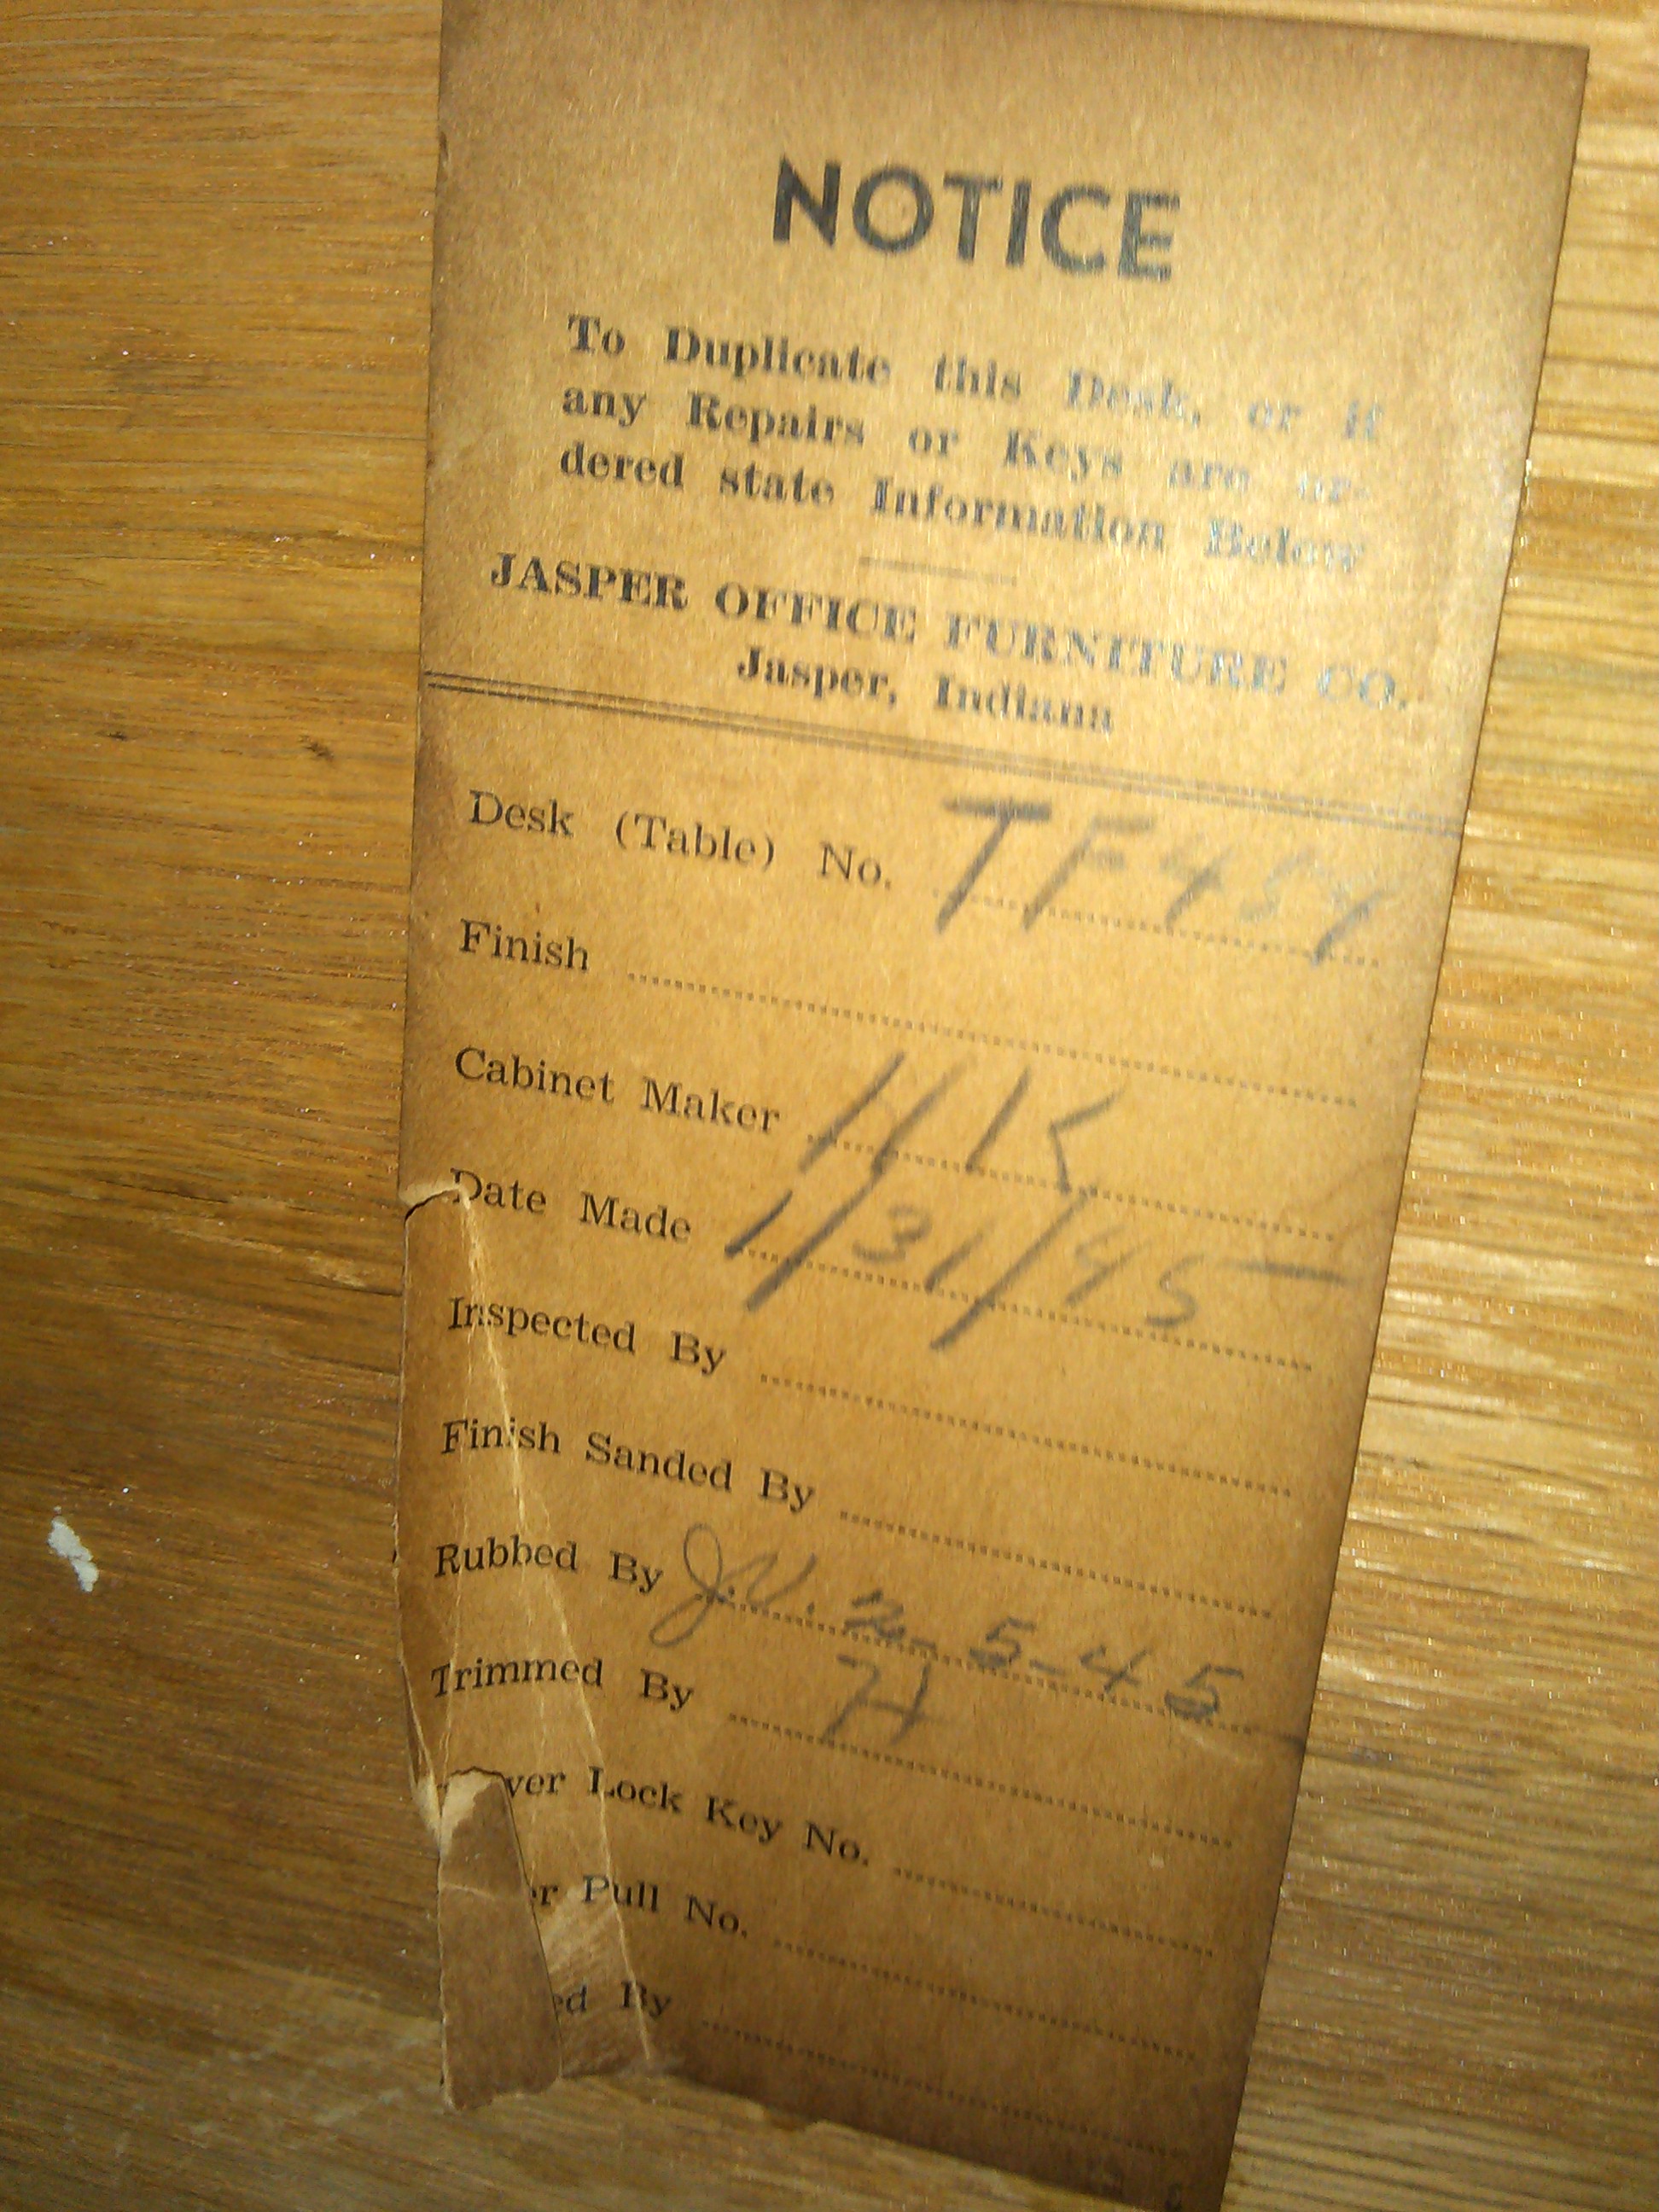 NOTICE
To Duplicate this Desk, or if
any Repairs or Keys are or-
dered state Information Below
JASPER OFFICE FURNITURE CO.
Jasper, Indiana
Desk (Table) No.
Finish
Cabinet Maker
Date Made 1/31/45
Inspected By
Finish Sanded By
Rubbed By J.V. 2-5-45
Trimmed By
Lock Key No.
Pull No.
By